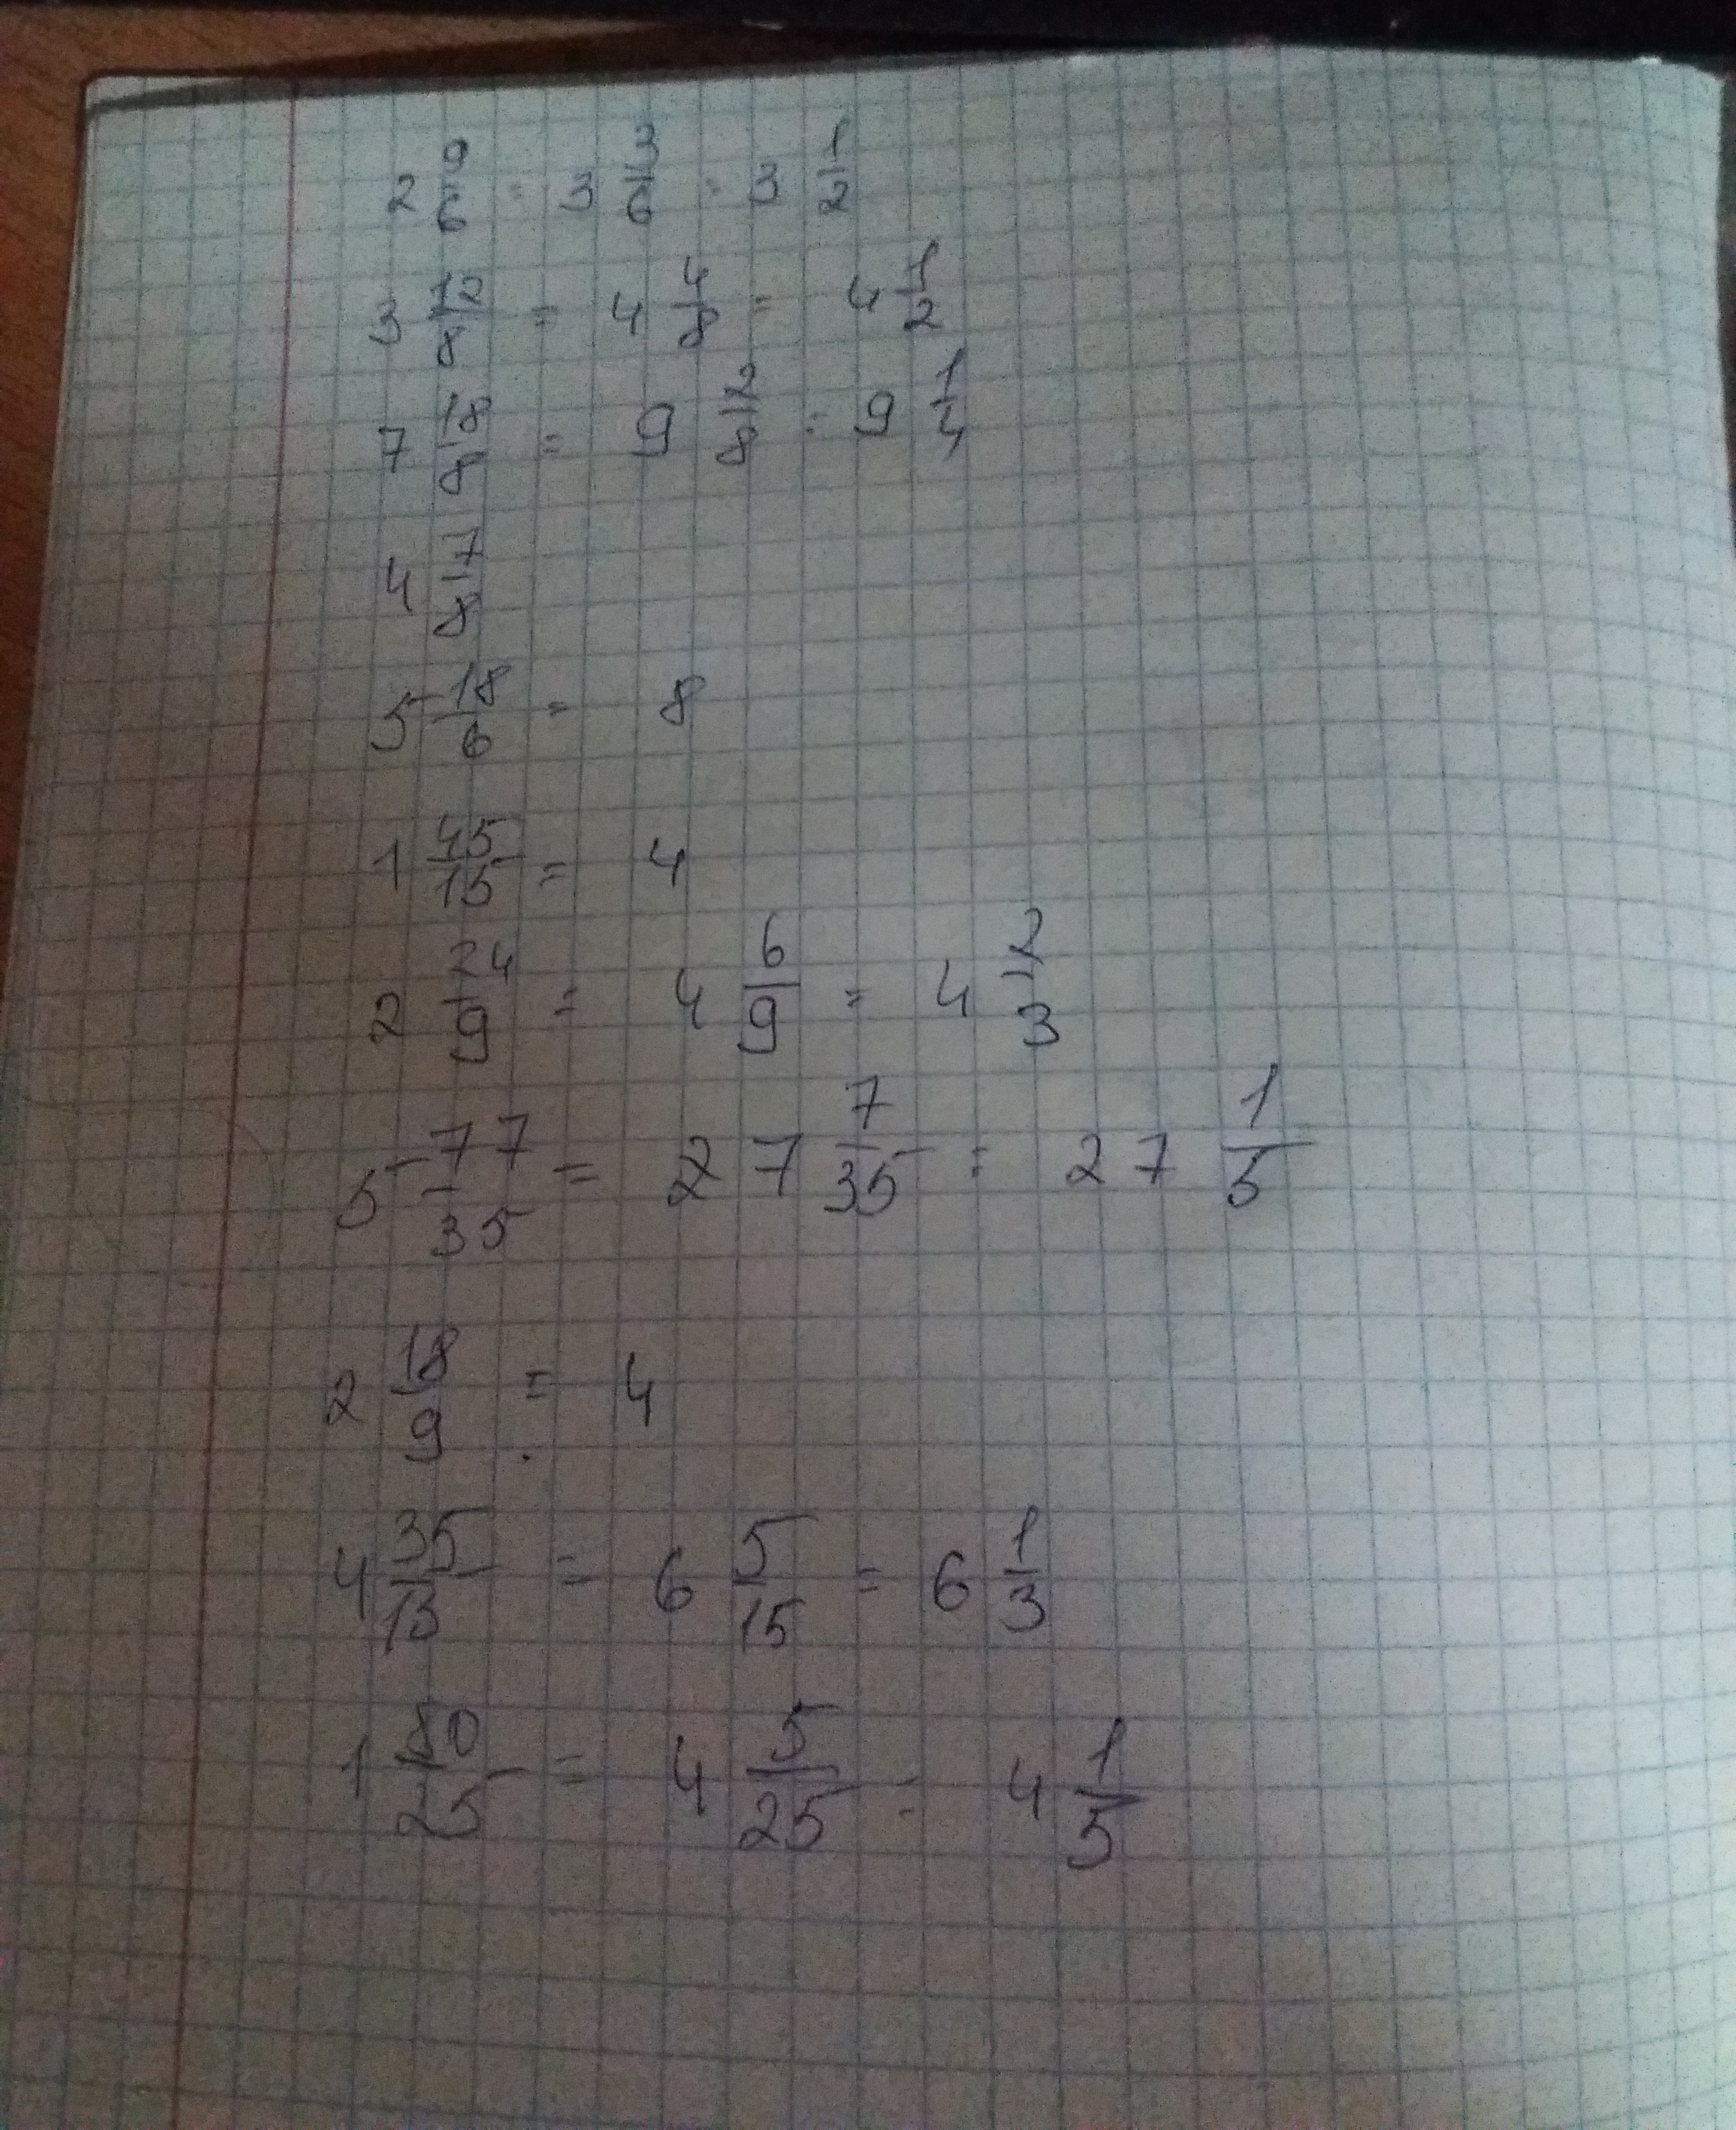 2 9/6 = 3 3/6 = 3 1/2
3 12/8 = 4 4/8 = 4 1/2
7 18/8 = 9 2/8 = 9 1/4
4 7/8
5 18/6 = 8
1 45/15 = 4
2 24/9 = 4 6/9 = 4 2/3
5 77/35 = 27 7/35 = 27 1/5
2 18/9 = 4
4 35/13 = 6 5/15 = 6 1/3
1 80/25 = 4 5/25 = 4 1/5